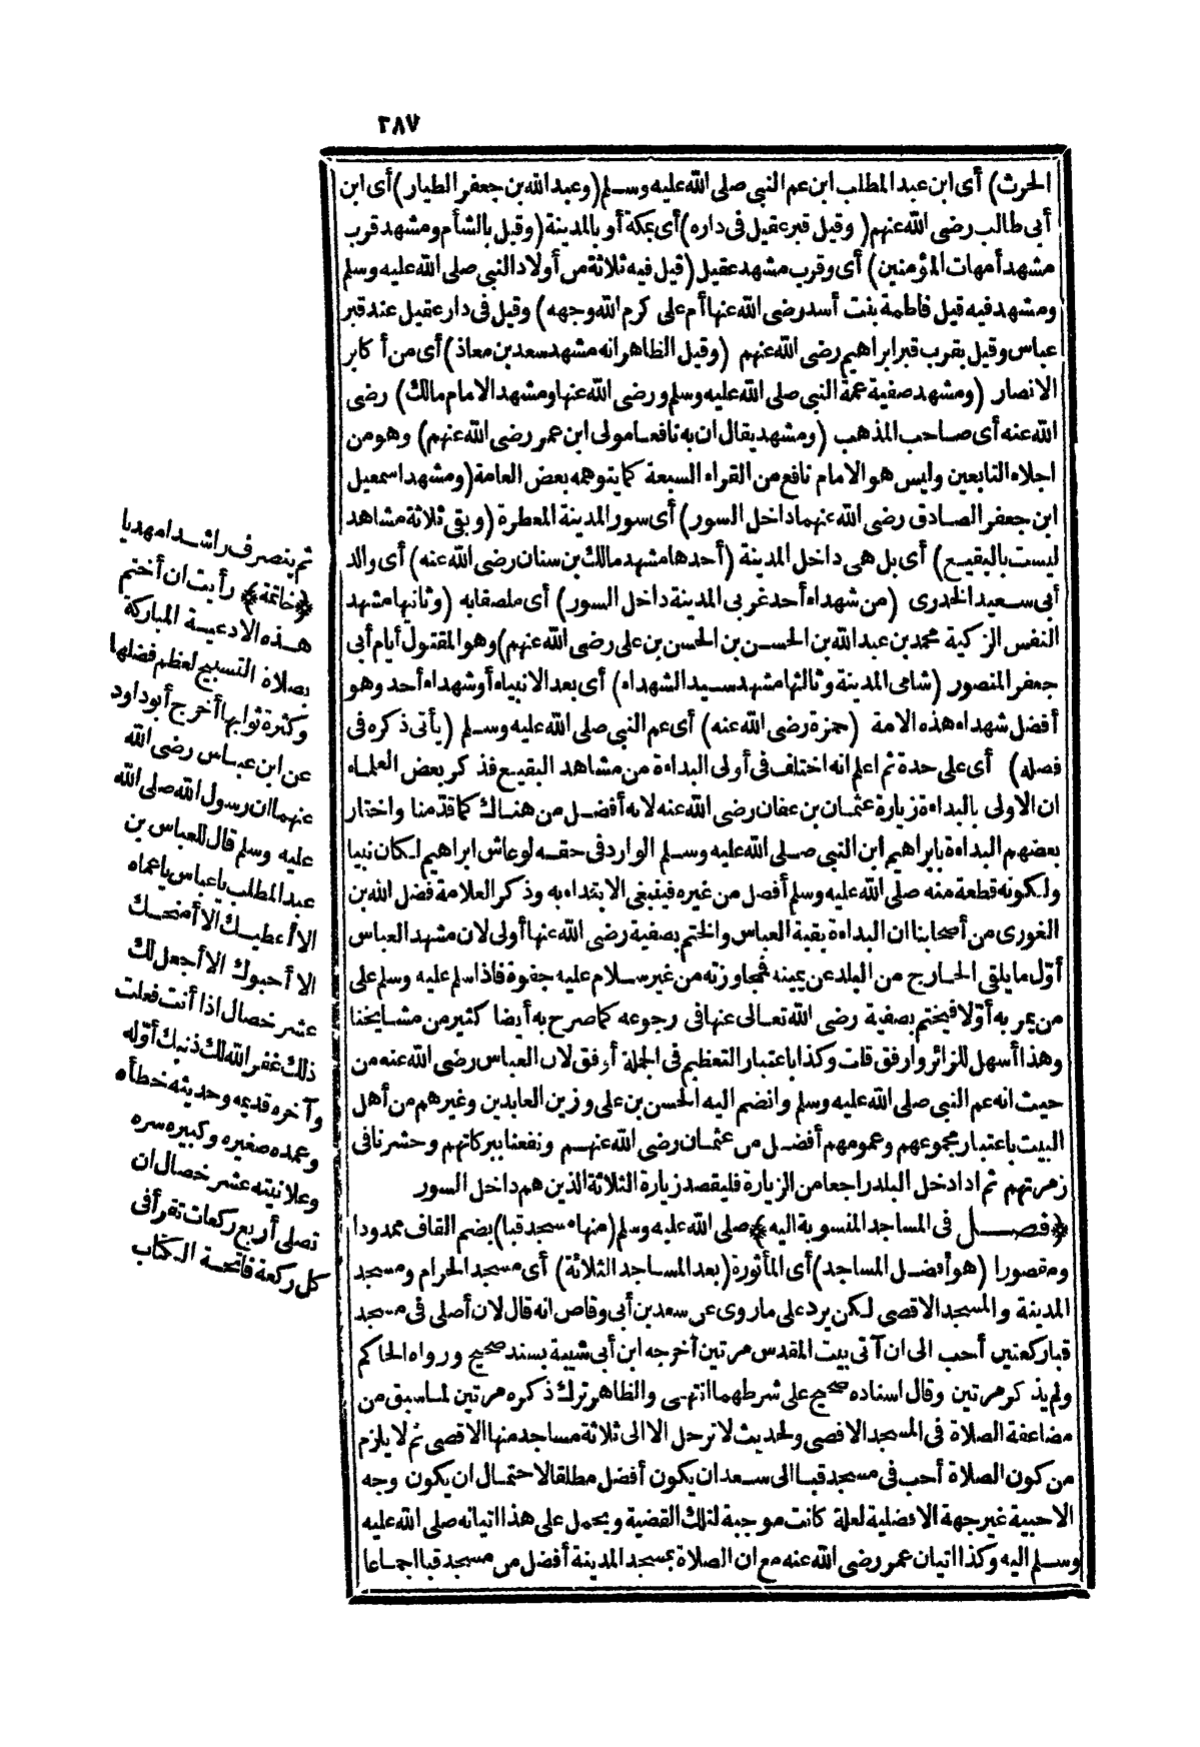 ٢٨٧
الحرث) أى ابن عبد المطلب ابن عم النبى صلى الله عليه وسلم (وعبد الله بن جعفر الطيار) أى ابن
أبى طالب رضى الله عنهم (وقيل قبر عقيل فى داره) أى بمكة أو بالمدينة (وقيل بالشأم ومشهد قرب
مشهد أمهات المؤمنين) أى وقرب مشهد عقيل (قيل فيه ثلاثة من أولاد النبى صلى الله عليه وسلم
ومشهد فيه قيل فاطمة بنت أسد رضى الله عنها أم على كرم الله وجهه) وقيل فى دار عقيل عند قبر
عباس وقيل بقرب قبر ابراهيم رضى الله عنهم (وقيل الظاهر انه مشهد سعد بن معاذ) أى من أكابر
الانصار (ومشهد صفية عمة النبى صلى الله عليه وسلم ورضى الله عنها ومشهد الامام مالك) رضى
الله عنه أى صاحب المذهب (ومشهد يقال ان به نافعا مولى ابن عمر رضى الله عنهم) وهو من
اجلاء التابعين وليس هو الامام نافع من القراء السبعة كما يتوهمه بعض العامة (ومشهد اسمعيل
ابن جعفر الصادق رضى الله عنهما داخل السور) أى سور المدينة المعطرة (وبقى ثلاثة مشاهد
ليست بالبقيع) أى بل هى داخل المدينة (أحدها مشهد مالك بن سنان رضى الله عنه) أى والد
أبى سعيد الخدرى (من شهداء أحد غربى المدينة داخل السور) أى ملصقا به (وثانيها مشهد
النفس الزكية محمد بن عبد الله بن الحسن بن الحسن بن على رضى الله عنهم) وهو المقتول أيام أبى
جعفر المنصور (شامى المدينة وثالثها مشهد سيد الشهداء) أى بعد الانبياء أو شهداء أحد وهو
أفضل شهداء هذه الامة (حمزة رضى الله عنه) أى عم النبى صلى الله عليه وسلم (يأتى ذكره فى
فصله) أى على حدة ثم اعلم انه اختلف فى أولى البداءة من مشاهد البقيع فذكر بعض العلماء
ان الاولى بالبداءة زيارة عثمان بن عفان رضى الله عنه لانه أفضل من هناك كما قدّمنا واختار
بعضهم البداءة بابراهيم ابن النبى صلى الله عليه وسلم الوارد فى حقه لو عاش ابراهيم لكان نبيا
ولكونه قطعة منه صلى الله عليه وسلم أفضل من غيره فينبغى الابتداء به وذكر العلامة فضل الله بن
الغورى من أصحابنا ان البداءة بقبة العباس والختم بصفية رضى الله عنها أولى لان مشهد العباس
أوّل ما يلقى الخارج من البلد عن يمينه فمجاوزته من غير سلام عليه جفوة فاذا سلم عليه وسلم على
من يمر به أوّلا فيختم بصفية رضى الله تعالى عنها فى رجوعه كما صرح به أيضا كثير من مشايخنا
وهذا أسهل للزائر وارفق قات وكذا باعتبار التعظيم فى الجملة أرفق لان العباس رضى الله عنه من
حيث انه عم النبى صلى الله عليه وسلم وانضم اليه الحسن بن على وزين العابدين وغيرهم من أهل
البيت باعتبار مجموعهم وعمومهم أفضل من عثمان رضى الله عنهم ونفعنا ببركاتهم وحشرنا فى
زمرتهم ثم اذا دخل البلد راجعا من الزيارة فليقصد زيارة الثلاثة الذين هم داخل السور
﴿فصل فى المساجد المنسوبة اليه﴾ صلى الله عليه وسلم (منها مسجد قبا) بضم القاف ممدودا
ومقصورا (هو أفضل المساجد) أى المأثورة (بعد المساجد الثلاثة) أى مسجد الحرام ومسجد
المدينة والمسجد الاقصى لكن يرد على ما روى عن سعد بن أبى وقاص انه قال لان أصلى فى مسجد
قبا ركعتين أحب الى ان آتى بيت المقدس مرتين أخرجه ابن أبى شيبة بسند صحيح ورواه الحاكم
ولم يذكر مرتين وقال اسناده صحيح على شرطهما انتهى والظاهر ترك ذكره مرتين لما سبق من
مضاعفة الصلاة فى المسجد الاقصى ولحديث لا ترحل الا الى ثلاثة مساجد منها الاقصى ثم لا يلزم
من كون الصلاة أحب فى مسجد قبا الى سعد ان يكون أفضل مطلقا لاحتمال ان يكون وجه
الاحبية غير جهة الافضلية لعلة كانت موجبة لتلك القضية ويحمل على هذا اتيانه صلى الله عليه
وسلم اليه وكذا اتيان عمر رضى الله عنه مع ان الصلاة بمسجد المدينة أفضل من مسجد قبا اجماعا
ثم ينصرف راشدا مهديا
﴿خاتمة﴾ رأيت ان أختم
هذه الادعية المباركة
بصلاة التسبيح لعظم فضلها
وكثرة ثوابها أخرج أبو داود
عن ابن عباس رضى الله
عنهما ان رسول الله صلى الله
عليه وسلم قال للعباس بن
عبد المطلب يا عباس يا عماه
الا أعطيك الا أمنحك
الا أحبوك الا أجعل لك
عشر خصال اذا أنت فعلت
ذلك غفر الله لك ذنبك أوّله
وآخره قديمه وحديثه خطأه
وعمده صغيره وكبيره سره
وعلانيته عشر خصال ان
تصلى أربع ركعات تقرأ فى
كل ركعة فاتحة الكتاب